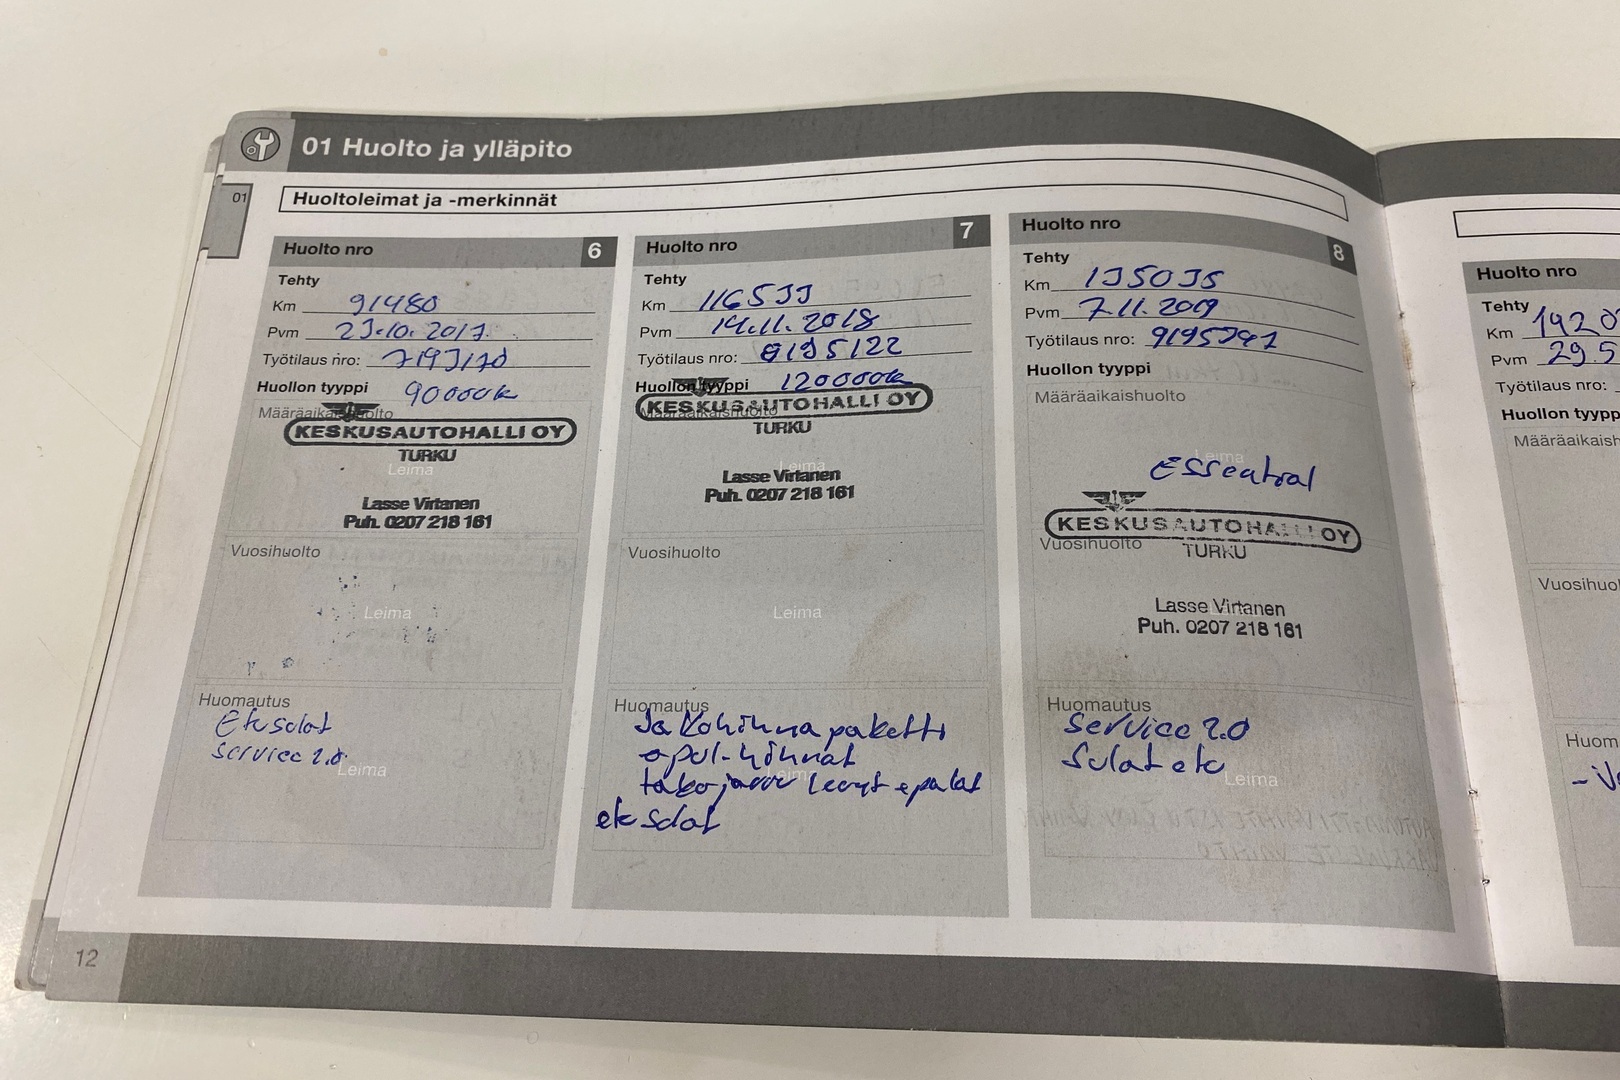 01 Huolto ja ylläpito
01
Huoltoleimat ja -merkinnät
Huolto nro 6
Tehty
Km 91480
Pvm 23.10.2017.
Työtilaus nro:
Huollon tyyppi 90000k
Määräaikaishuolto
KESKUSAUTOHALLI OY
TURKU
Leima
Lasse Virtanen
Puh. 0207 218 161
Vuosihuolto
Leima
Huomautus
Etusulat
service 2.0
Leima
Huolto nro 7
Tehty
Km 116533
Pvm 14.11.2018
Työtilaus nro: 8195122
Huollon tyyppi 120000k
Määräaikaishuolto
KESKUSAUTOHALLI OY
TURKU
Leima
Lasse Virtanen
Puh. 0207 218 161
Vuosihuolto
Leima
Huomautus
Jakohihnapaketti
apul-hihnat
takajarru levyt + palat
Leima
etu sulat
Huolto nro 8
Tehty
Km 135035
Pvm 7.11.2019
Työtilaus nro:
Huollon tyyppi
Määräaikaishuolto
Leima
Essential
KESKUSAUTOHALLI OY
Vuosihuolto
TURKU
Lasse Virtanen
Puh. 0207 218 161
Huomautus
Service 2.0
Sulat etu
Leima
12
Huolto nro
Tehty
Km
Pvm 29.5
Työtilaus nro: